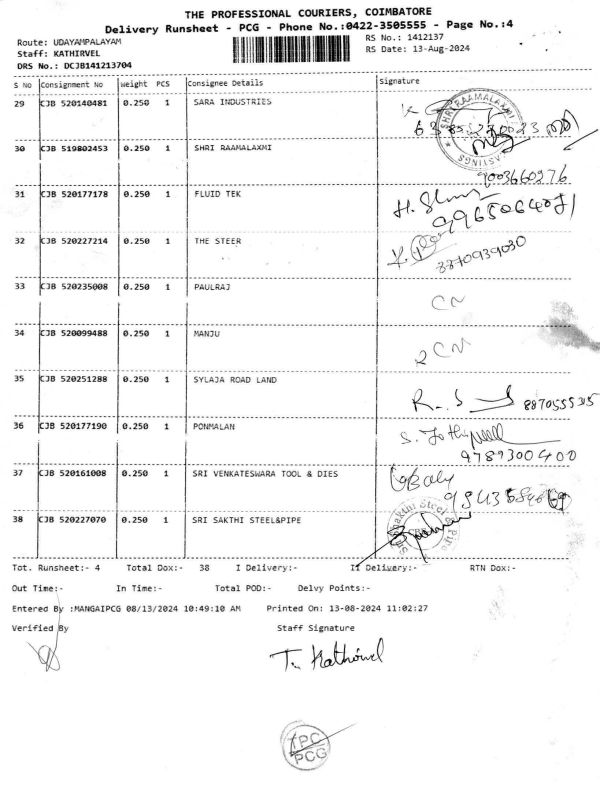 THE PROFESSIONAL COURIERS, COIMBATORE
Delivery Runsheet - PCG - Phone No.:0422-3505555 - Page No.:4
Route: UDAYAMPALAYAM
RS No.: 1412137
Staff: KATHIRVEL
RS Date: 13-Aug-2024
DRS No.: DCJB141213704
S No Consignment No Weight PCS Consignee Details Signature
29 CJB 520140481 0.250 1 SARA INDUSTRIES
SHRI RAAMALAXMI
30 CJB 519802453 0.250 1 SHRI RAAMALAXMI
9003660276
31 CJB 520177178 0.250 1 FLUID TEK
9965064071
32 CJB 520227214 0.250 1 THE STEER
8870939030
33 CJB 520235008 0.250 1 PAULRAJ
CN
34 CJB 520099488 0.250 1 MANJU
CN
35 CJB 520251288 0.250 1 SYLAJA ROAD LAND
36 CJB 520177190 0.250 1 PONMALAN
9789300400
37 CJB 520161008 0.250 1 SRI VENKATESWARA TOOL & DIES
38 CJB 520227070 0.250 1 SRI SAKTHI STEEL&PIPE
Tot. Runsheet:- 4 Total Dox:- 38 I Delivery:- II Delivery:- RTN Dox:-
Out Time:- In Time:- Total POD:- Delvy Points:-
Entered By :MANGAIPCG 08/13/2024 10:49:10 AM Printed On: 13-08-2024 11:02:27
Verified By Staff Signature
T. Kathirvel
TPC
PCG